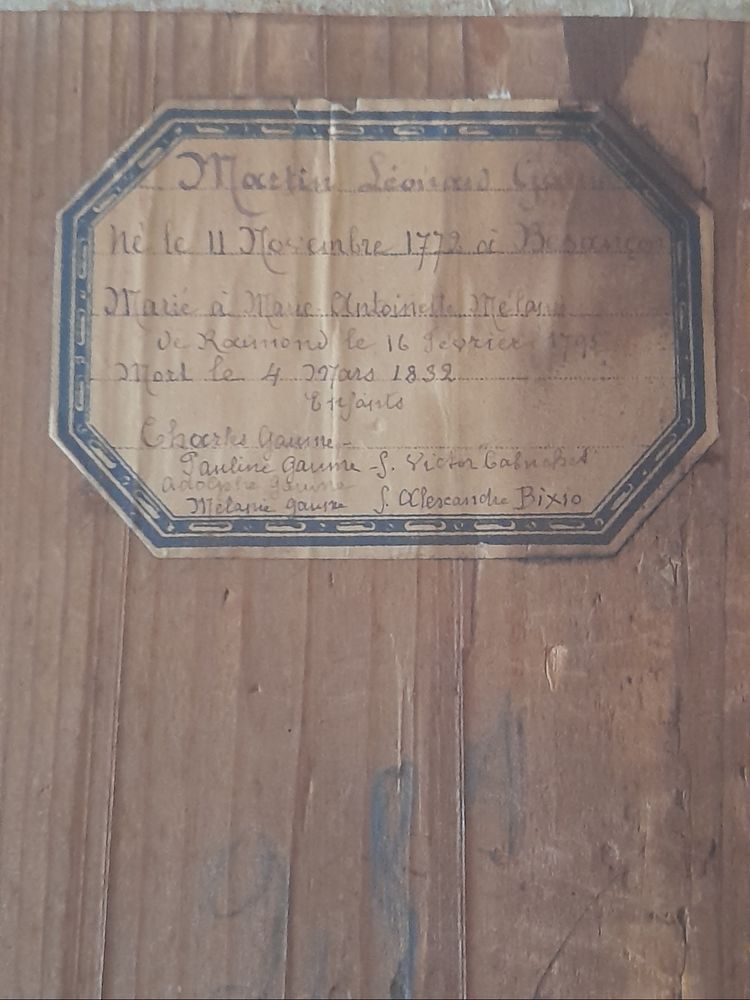 Martin Léonard
Né le 11 Novembre 1772 à Besançon
Marié à Marie Antoinette Mélanie
de Raimond le 16 Février
Mort le 4 Mars 1832
Enfants
Charles Gaume -
Pauline Gaume - f. Victor
adolphe gaume
Mélanie gaume f. Alexandre Bixio